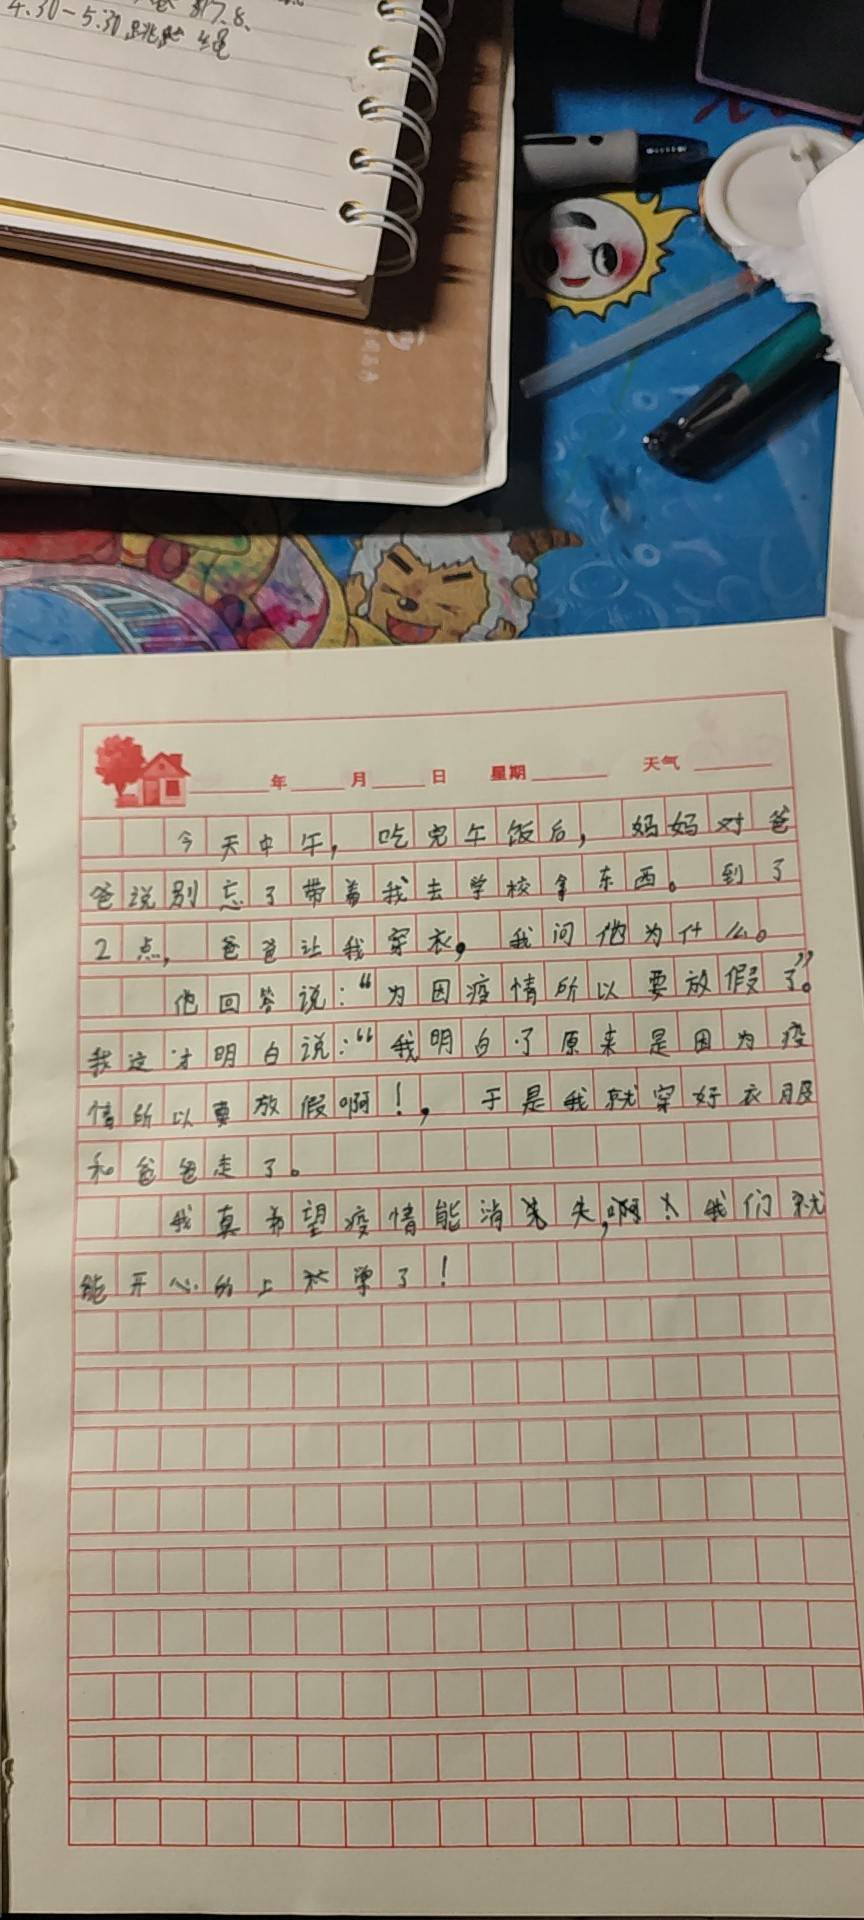 817.8、
4.30-5:30跳绳
年 月 日 星期 天气
今天中午，吃完午饭后，妈妈对爸
爸说别忘了带着我去学校拿东西。到了
2点，爸爸让我穿衣，我问他为什么。
他回答说：“为因疫情所以要放假了”。
我这才明白说：“我明白了原来是因为疫
情所以要放假啊！，于是我就穿好衣服
和爸爸走了。
我真希望疫情能消失，啊！我们就
能开心的上学了！